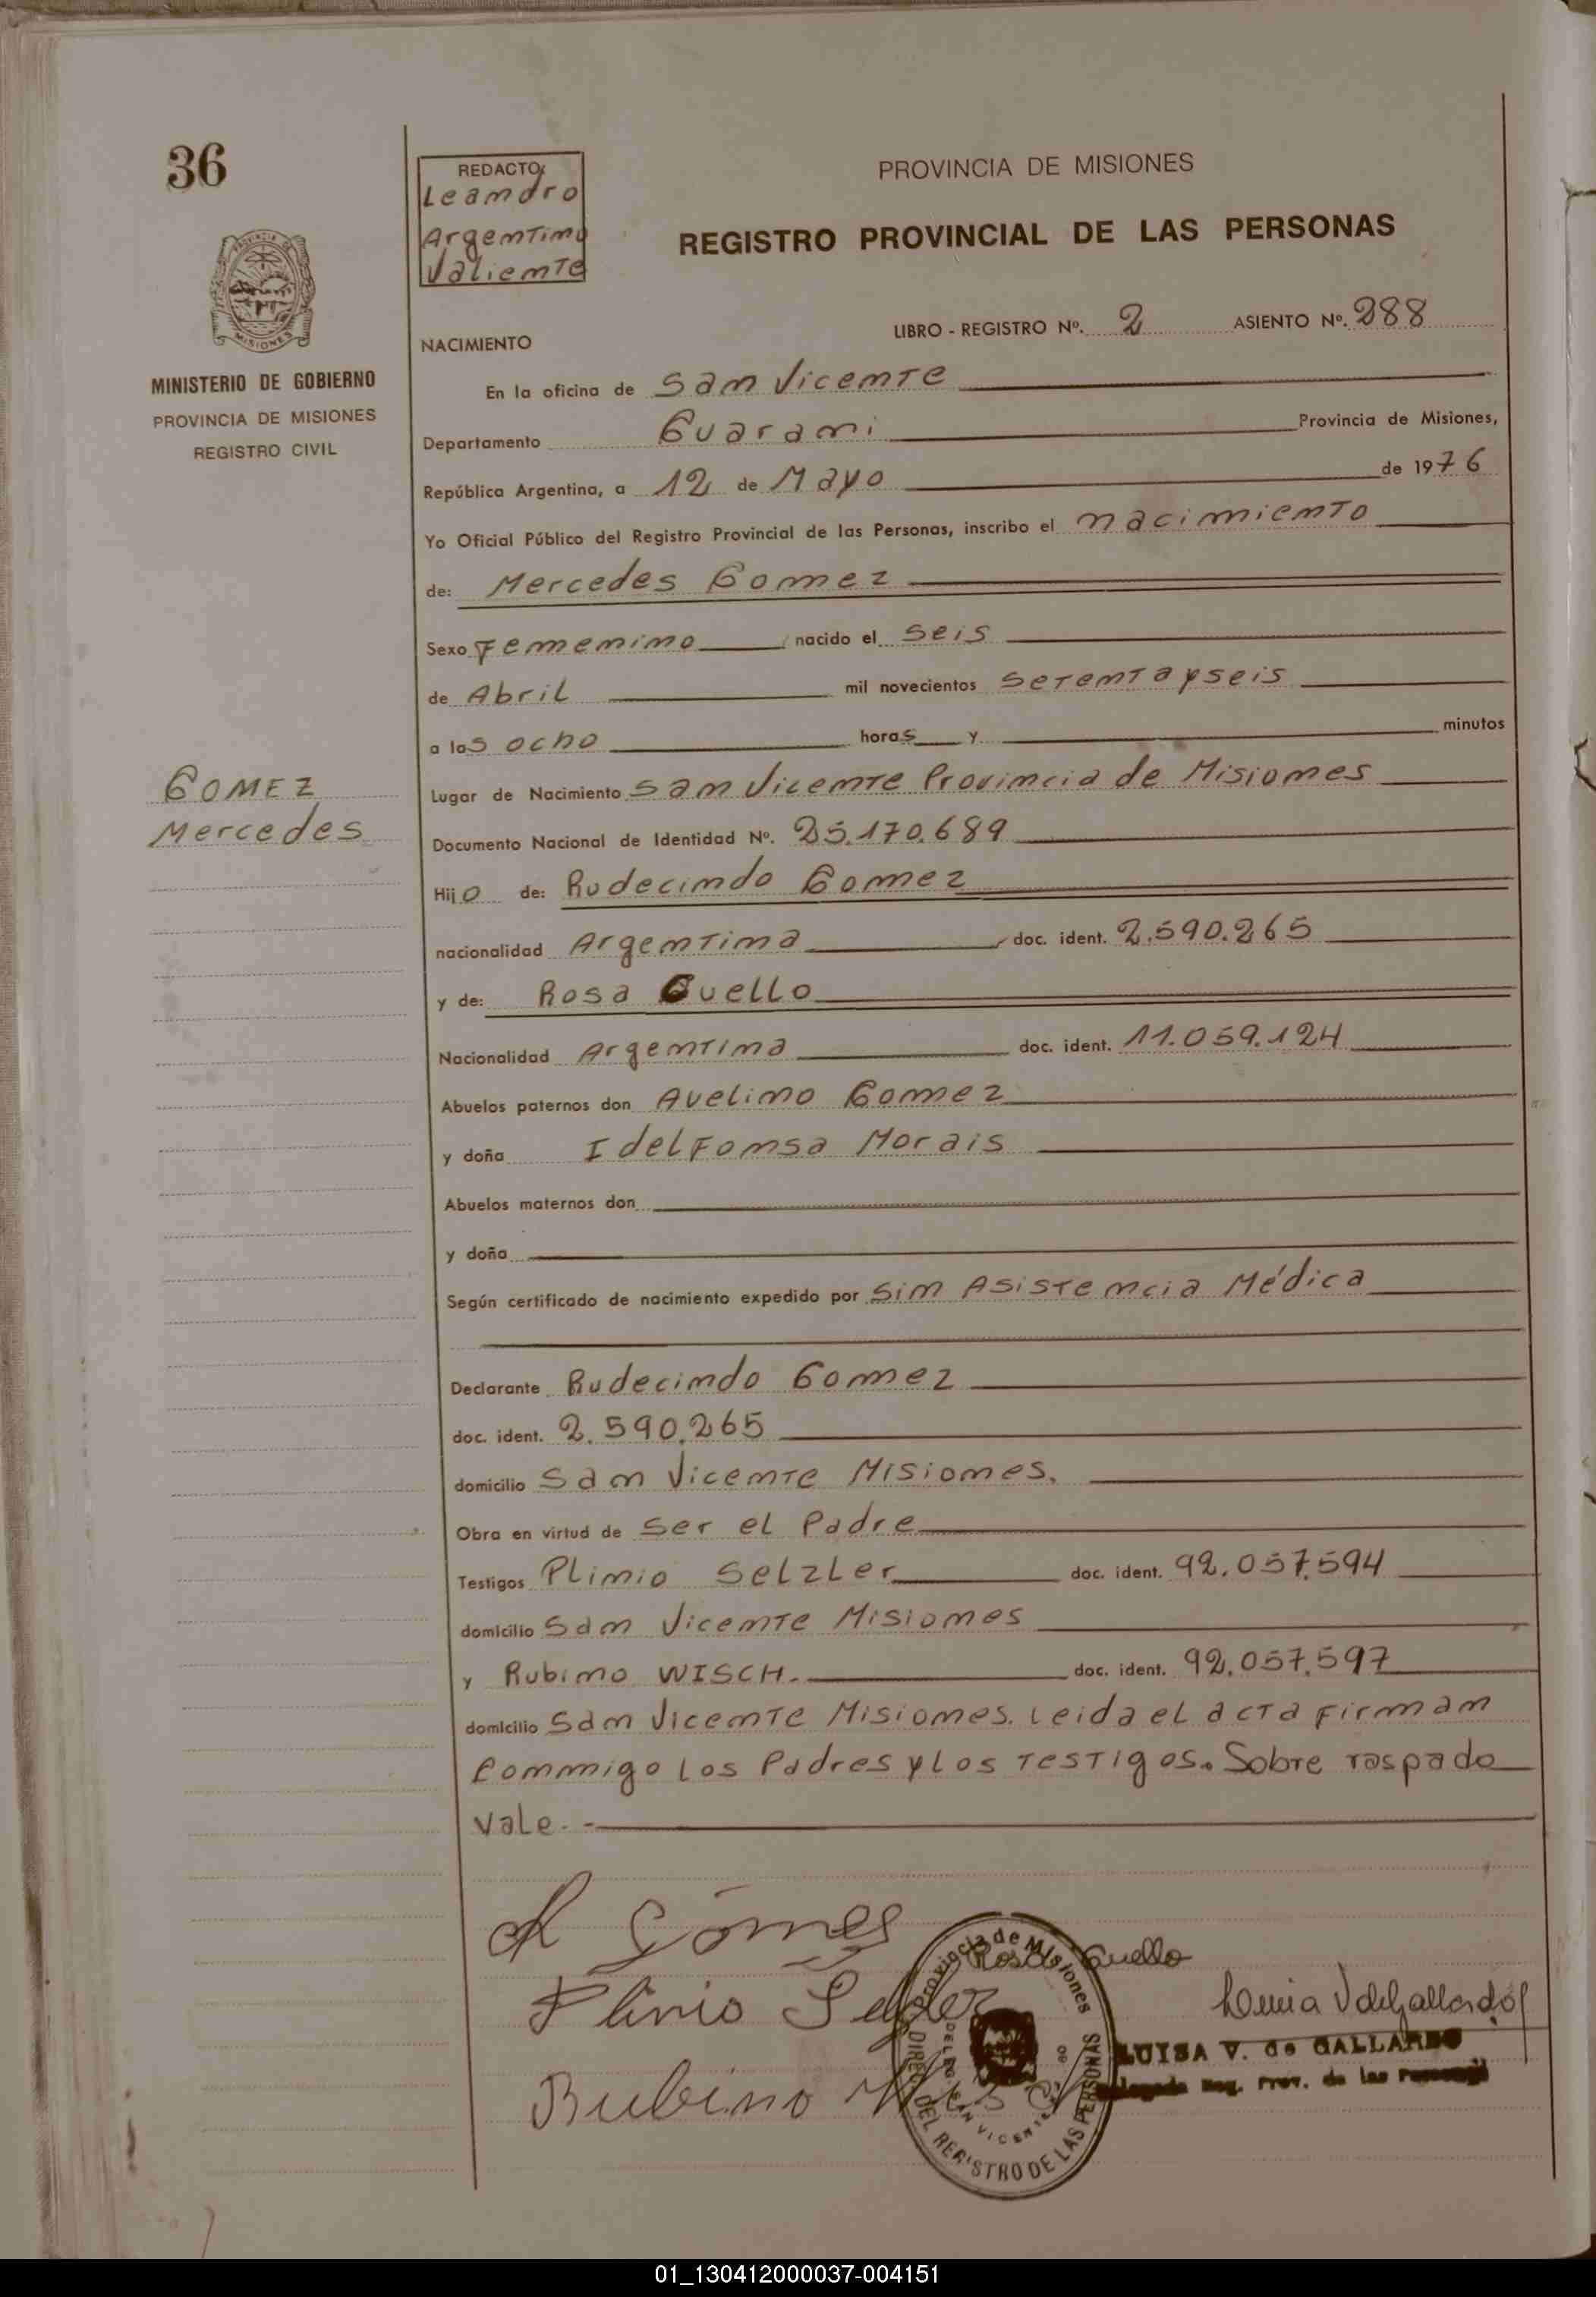 36
PROVINCIA DE MISIONES
MINISTERIO DE GOBIERNO
PROVINCIA DE MISIONES
REGISTRO CIVIL
REDACTO:
Leandro
Argentino
Valiente
PROVINCIA DE MISIONES
REGISTRO PROVINCIAL DE LAS PERSONAS
LIBRO - REGISTRO Nº. 2 ASIENTO Nº. 288
NACIMIENTO
En la oficina de San Vicente
Departamento Guarani Provincia de Misiones,
República Argentina, a 12 de Mayo de 1976
Yo Oficial Público del Registro Provincial de las Personas, inscribo el nacimiento
de: Mercedes Gomez
Sexo Femenino nacido el seis
de Abril mil novecientos setentayseis
a las ocho horas y minutos
GOMEZ
Mercedes
Lugar de Nacimiento San Vicente Provincia de Misiones
Documento Nacional de Identidad Nº. 25.170.689
Hijo de: Rudecindo Gomez
nacionalidad Argentina doc. ident. 2.590.265
y de: Rosa Cuello
Nacionalidad Argentina doc. ident. 11.059.124
Abuelos paternos don Avelino Gomez
y doña Idelfonsa Morais
Abuelos maternos don
y doña
Según certificado de nacimiento expedido por Sin Asistencia Médica
Declarante Rudecindo Gomez
doc. ident. 2.590.265
domicilio San Vicente Misiones.
Obra en virtud de ser el Padre
Testigos Plinio Selzler doc. ident. 92.057.594
domicilio San Vicente Misiones
y Rubino WISCH. doc. ident. 92.057.597
domicilio San Vicente Misiones. Leida el acta Firman
Conmigo los Padres y los Testigos. Sobre raspado
vale. -
R Gómes
Rosa Cuello
Plinio Selzler
Luisa V de Gallardo
LUISA V. de GALLARDO
Delegada Reg. Prov. de las Personas
Rubino Wisch
Provincia de Misiones
DIREC. DEL REGISTRO DE LAS PERSONAS
SAN VICENTE
01_130412000037-004151